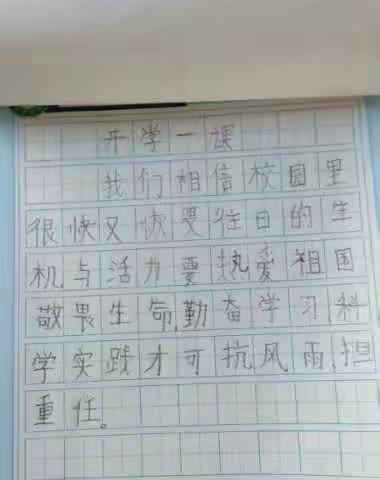 开学一课
我们相信校园里
很快又恢复往日的生
机,与活力要热爱祖国
敬畏生命,勤奋学习科
学实践才可抗风雨,担
重任。